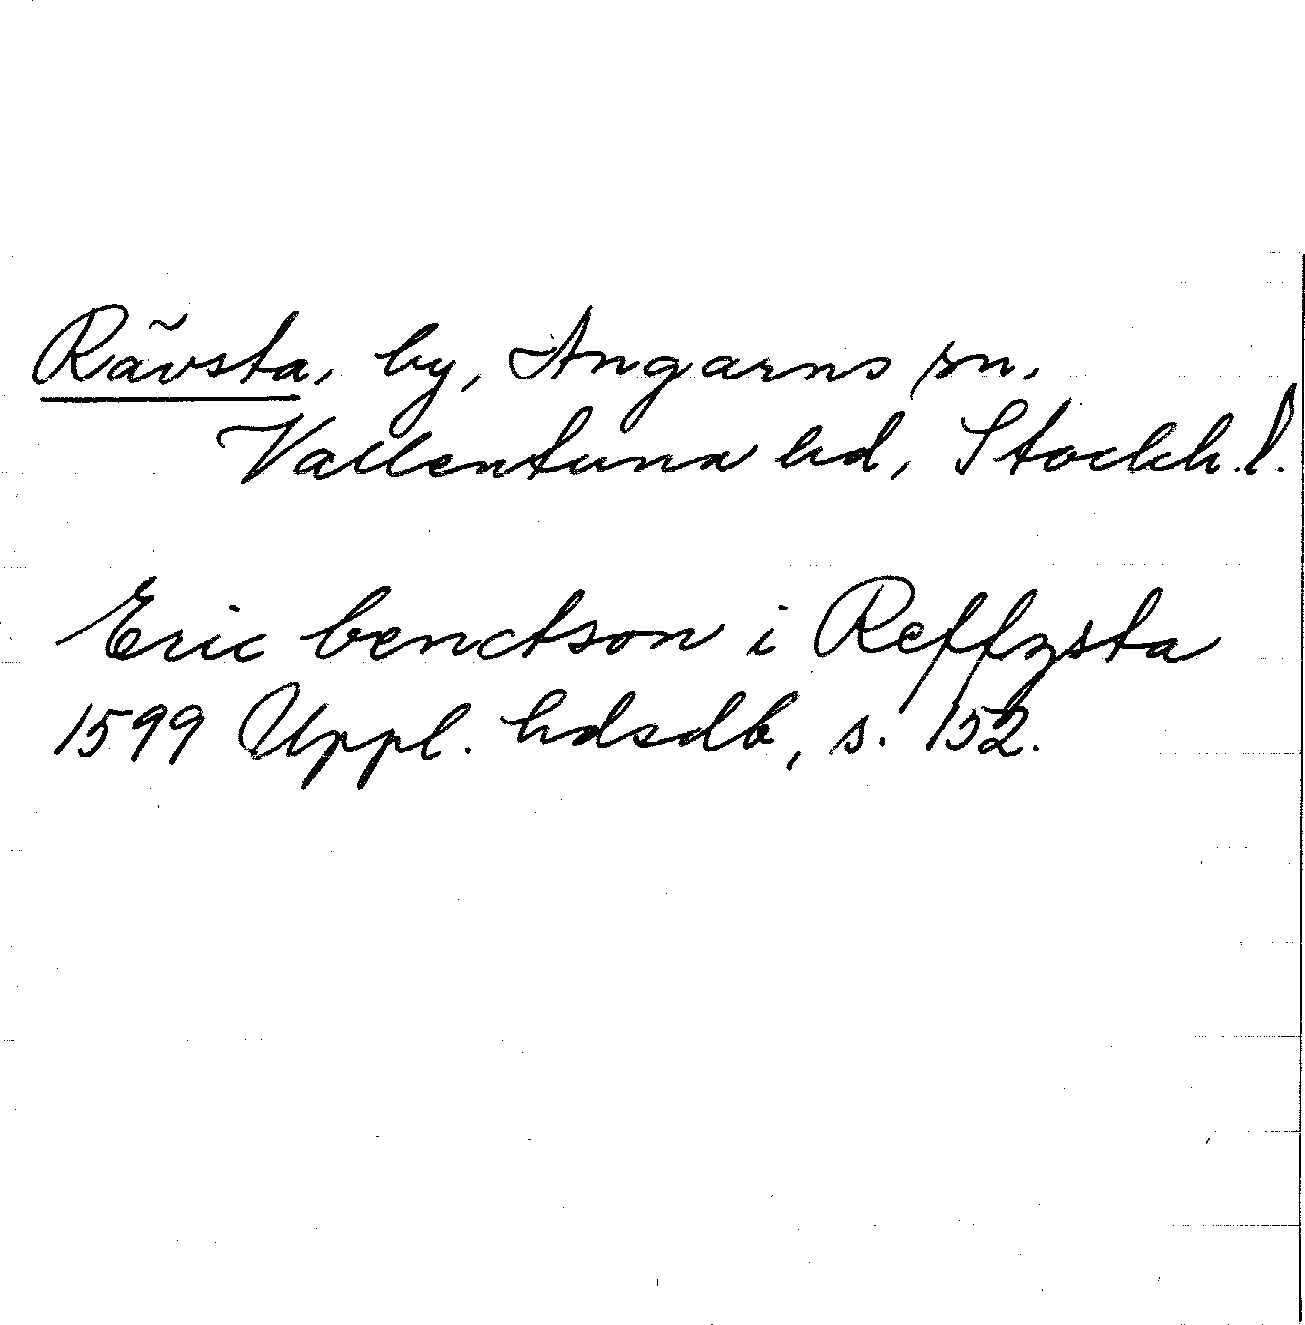 Rävsta, by, Angarns sn.
Vallentuna hd, Stockh.l.
Eric benctson i Reffzsta
1599 Uppl. hdsdb, s. 152.